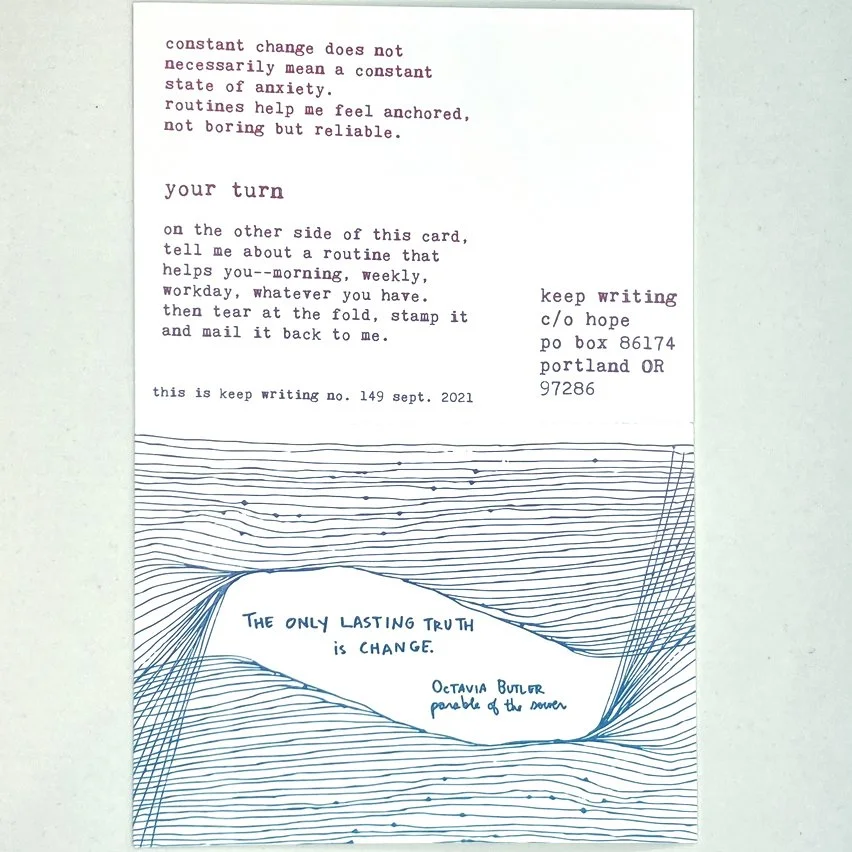 constant change does not
necessarily mean a constant
state of anxiety.
routines help me feel anchored,
not boring but reliable.
your turn
on the other side of this card,
tell me about a routine that
helps you--morning, weekly,
workday, whatever you have.
then tear at the fold, stamp it
and mail it back to me.
this is keep writing no. 149 sept. 2021
keep writing
c/o hope
po box 86174
portland OR
97286
THE ONLY LASTING TRUTH
is CHANGE.
OCTAVIA BUTLER
parable of the sower